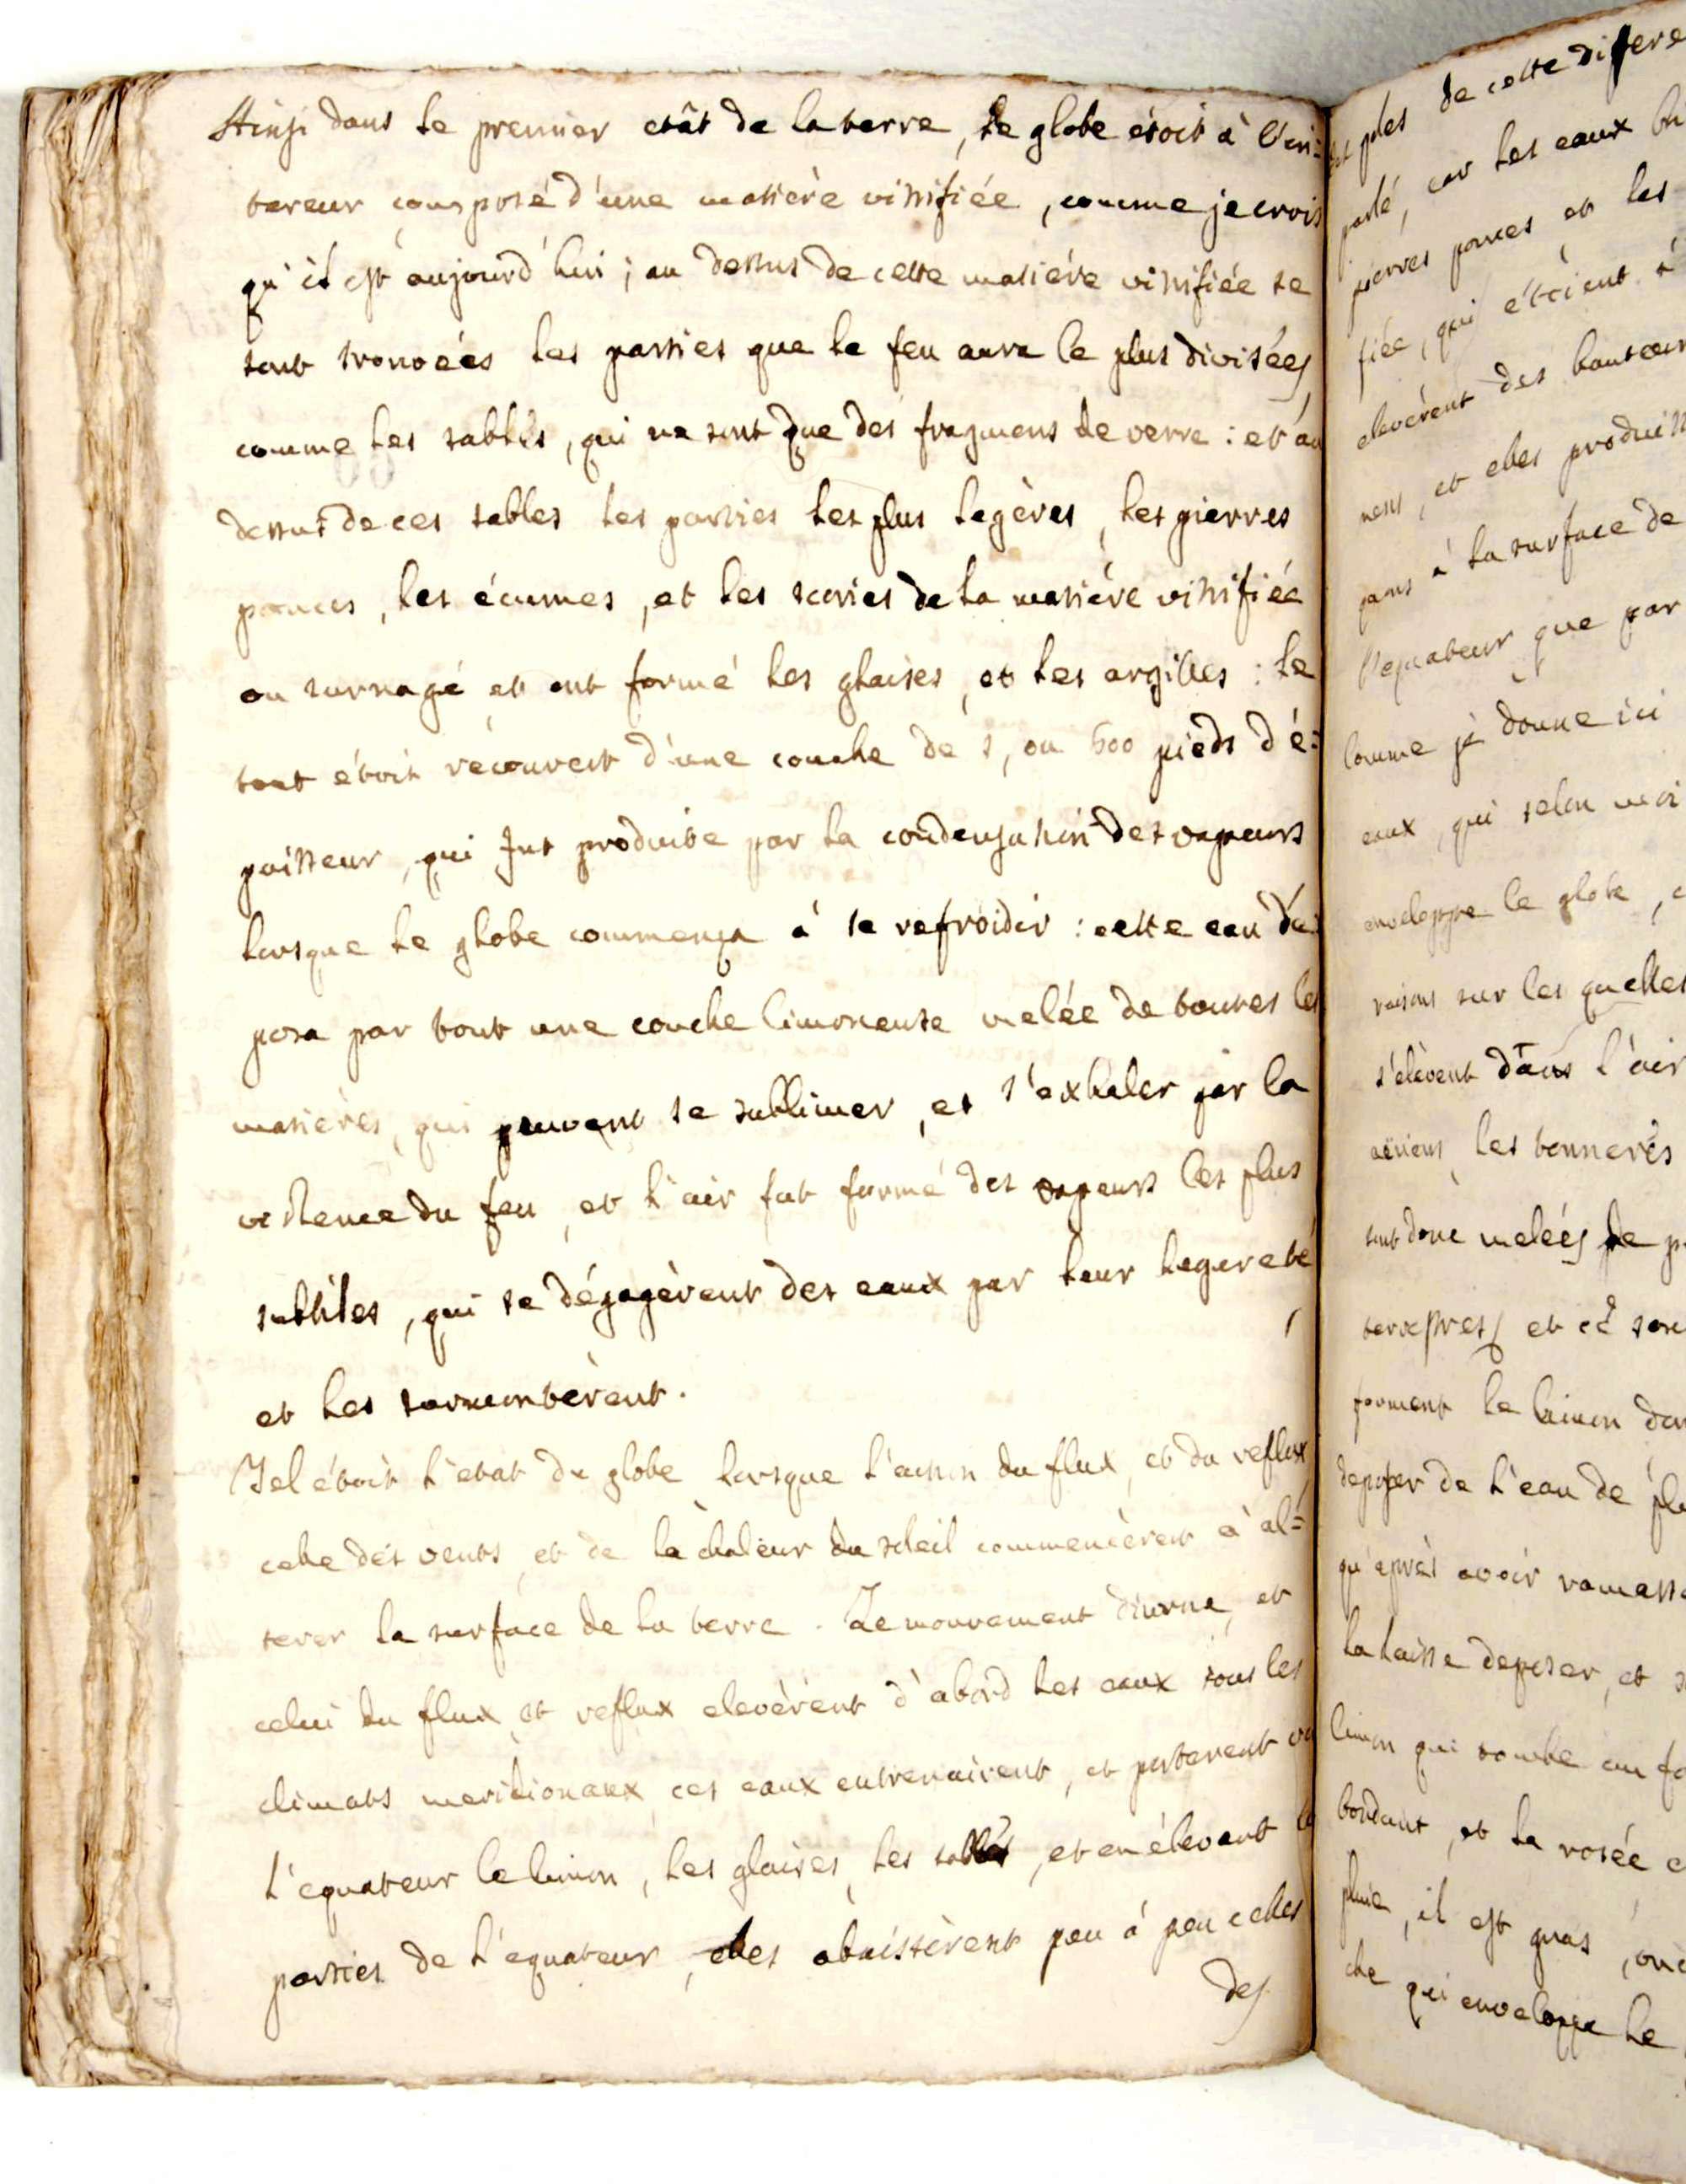 Ainsi dans le premier etât de la terre, le globe étoit à l'in=
tereur composé d'une matière vitrifiée, comme je crois
qu'il est aujourd'hui; au dessus de cette matiére vitrifiée se
sont trouvées les parties que le feu aura le plus divisées,
comme les sables, qui ne sont que des fragmens de verre: et au
dessus de ces sables les parties les plus legères, les pierres
ponces, les écumes, et les scories de la matiére vitrifiée
on surnagé et ont formé les glaises, et les argilles: le
tout étoit récouvert d'une couche de 5, ou 600 pieds d'é=
paisseur, qui fut produite par la condensation des vapeurs
lorsque le globe commença à se refroidir: cette eau dé=
posa par tout une couche limoneuse melée de toutes les
matières, qui peuvent se sublimer, et s'exhaler par la
violence du feu, et l'air fut formé des vapeurs les plus
subtiles, qui se dégagèrent des eaux par leur legereté,
et les surmontèrent.
Tel étoit l'etat du globe lorsque l'action du flux, et du reflux,
celle des vents, et de la chaleur du soleil commencèrent à al=
terer la surface de la terre. Le mouvement diurne, et
celui du flux et reflux elevèrent d'abord les eaux sous les
climats meridionaux, ces eaux entrenairent, et porterent
l'equateur le limon, les glaises, les sables, et en élevant
parties de l'equateur, elles abaissèrent peu à peu celles
des
plus de cette difere
parlé, car les eaux
pierres ponces, et les
fiée, qui étoient à
elevèrent des hauteur
et elles produis
à la surface de
l'equateur que par
comme je donne ici
eaux, qui selon moi
enveloppe le globe,
raisons sur les quelles
s'elèvent dans l'air
aëriens, les tonnerés
sont donc melées de
terrestres, et ce sont
forment le limon
deposer de l'eau de
qu'après avoir ramassé
la laisse deposer, et
limon qui tombe au
et la rosée
pluie, il est gras,
che qui enveloppe le